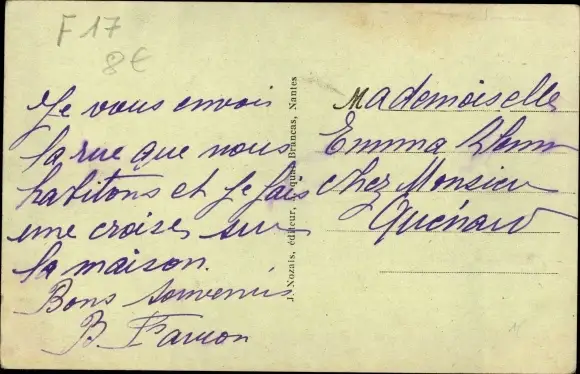 F 17
8€
Je vous envois
la rue que nous
habitons et je fais
une croise sur
la maison.
Bons souvenirs
B.
J. Nozais, éditeur, Jacques Brancas, Nantes
Mademoiselle
Emma
chez Monsieur
Quénard